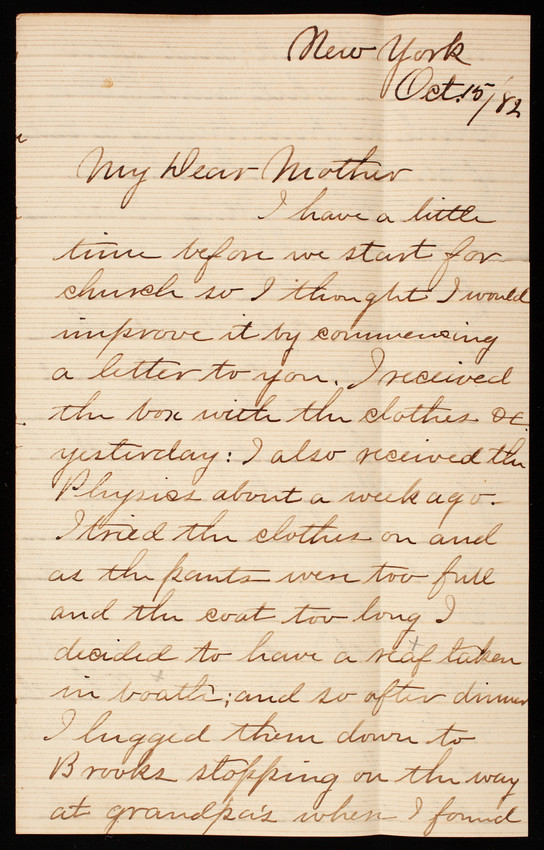 New York
Oct. 15/'82
My Dear Mother
I have a little
time before we start for
church so I thought I would
improve it by commencing
a letter to you. I received
the box with the clothes &c
yesterday: I also received the
Physics about a week ago.
I tried the clothes on and
as the pants were too full
and the coat too long I
decided to have a reaf taken
in boath; and so after dinner
I lugged them down to
Brooks stopping on the way
at grandpa's when I found